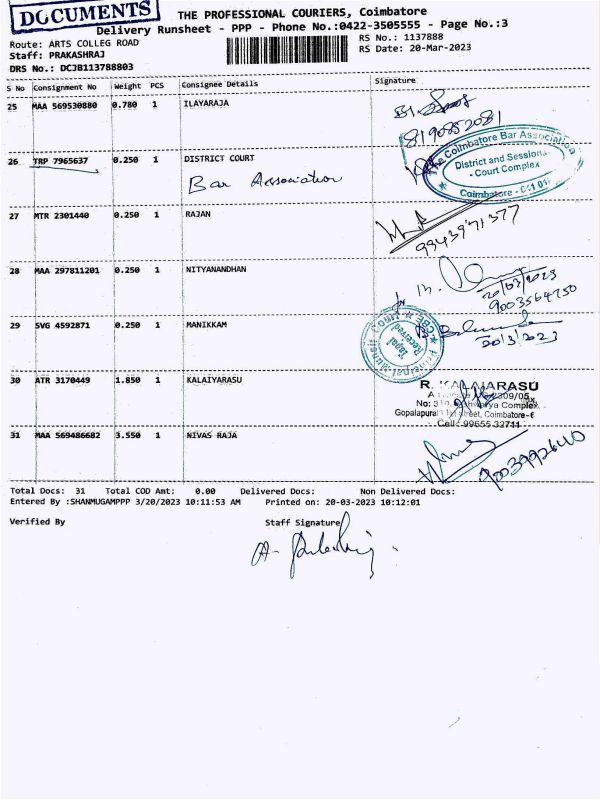 DOCUMENTS
THE PROFESSIONAL COURIERS, Coimbatore
Delivery Runsheet - PPP - Phone No.:0422-3505555 - Page No.:3
Route: ARTS COLLEG ROAD
RS No.: 1137888
Staff: PRAKASHRAJ
RS Date: 20-Mar-2023
DRS No.: DCJB113788803
S No Consignment No Weight PCS Consignee Details Signature
25 MAA 569530880 0.780 1 ILAYARAJA
8190852081
26 TRP 7965637 0.250 1 DISTRICT COURT
Bar Association
The Coimbatore Bar Association
District and Sessions
Court Complex
Coimbatore - 641 018
27 MTR 2301440 0.250 1 RAJAN
9943971377
28 MAA 297811201 0.250 1 NITYANANDHAN
20/03/2023
9003564750
29 SVG 4592871 0.250 1 MANIKKAM
Principal Munsif Court
CBE
Tapal
Received
20/3/2023
30 ATR 3170449 1.850 1 KALAIYARASU
R. KALAIARASU
2309/05
No: Complex
Gopalapuram 1st Street, Coimbatore-6
Cell: 99655 32711
31 MAA 569486682 3.550 1 NIVAS RAJA
Total Docs: 31 Total COD Amt: 0.00 Delivered Docs: Non Delivered Docs:
Entered By :SHANMUGAMPPP 3/20/2023 10:11:53 AM Printed on: 20-03-2023 10:12:01
Verified By Staff Signature